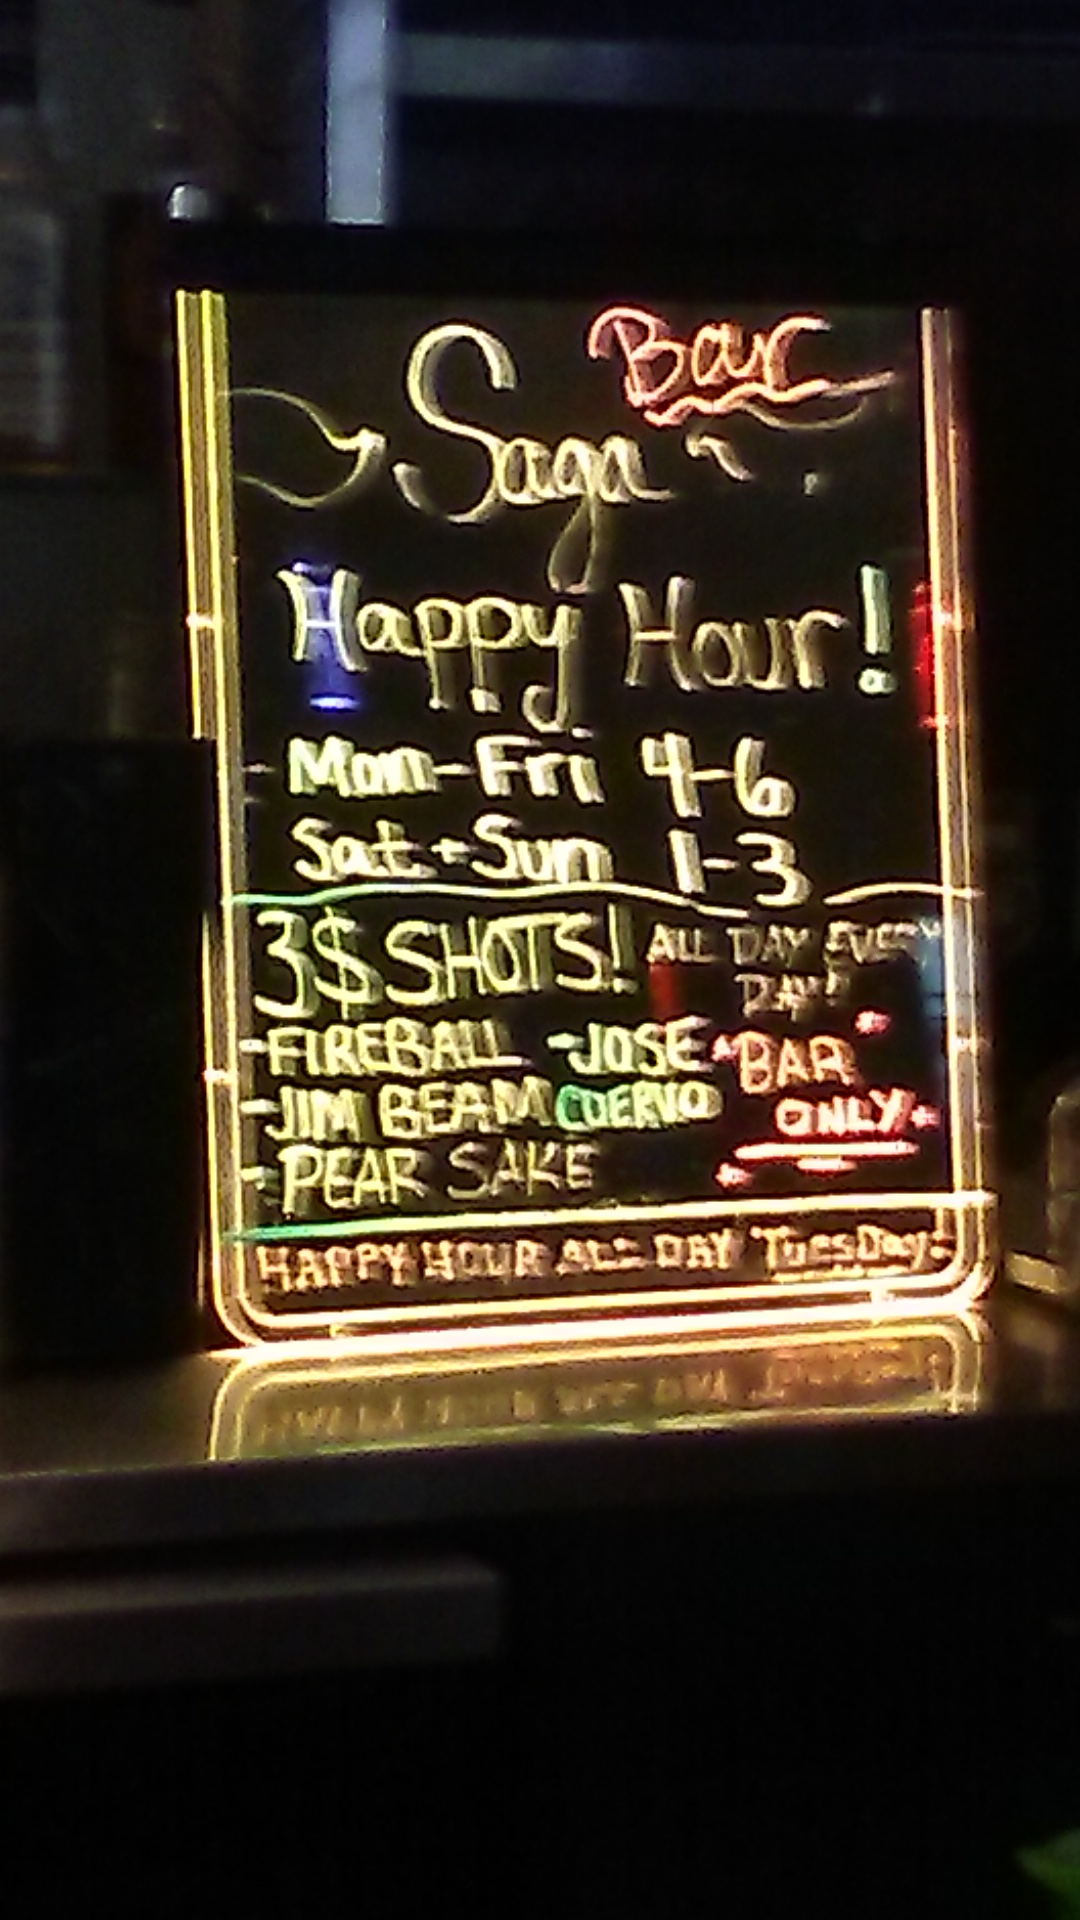 Bar
Saga
Happy Hour!
- Mon-Fri 4-6
Sat+Sun 1-3
3$ SHOTS! ALL DAY EVERY
DAY!
-FIREBALL -JOSE
-JIM BEAM CUERVO
- PEAR SAKE
*BAR
ONLY*
HAPPY HOUR ALL DAY TuesDay!